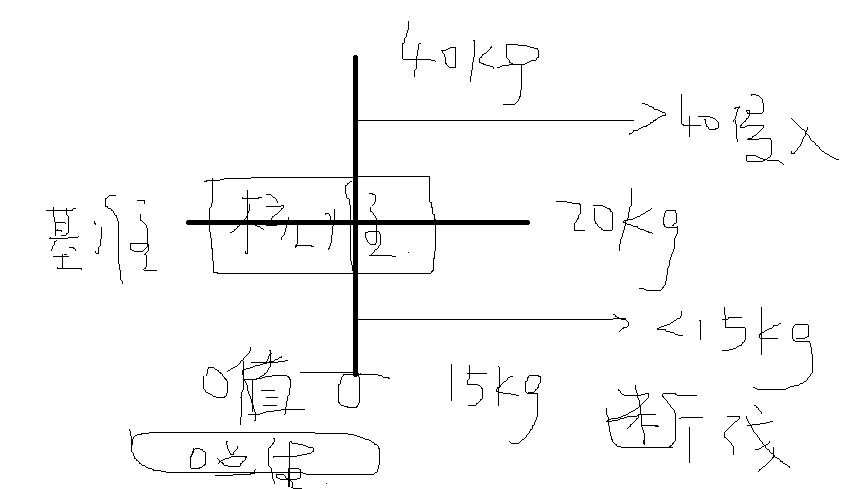 40kg
>40侵入
基值
20kg
<15kg
0值 0
15kg
断线